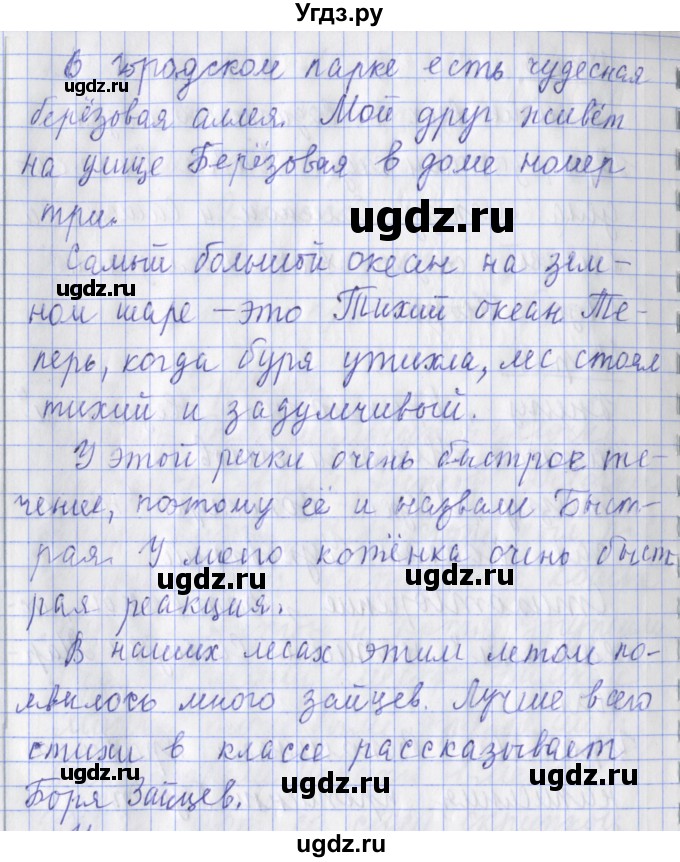 Угдз.ру
В городском парке есть чудесная
берёзовая аллея. Мой друг живёт
на улице Берёзовая в доме номер
три.
Самый большой океан на зем-
ном шаре - это Тихий океан Те-
перь, когда буря утихла, лес стоял
тихий и задумчивый.
У этой речки очень быстрое те-
чение, поэтому её и назвали Быст-
рая. У моего котёнка очень быст
рая реакция.
В наших лесах этим летом по-
явилось много зайцев. Лучше всего
стихи в классе рассказывает
Боря Зайцев.
ugdz.ru
ugdz.ru
ugdz.ru
ugdz.ru
ugdz.ru
ugdz.ru
ugdz.ru
ugdz.ru
ugdz.ru
ugdz.ru
ugdz.ru
ugdz.ru
ugdz.ru